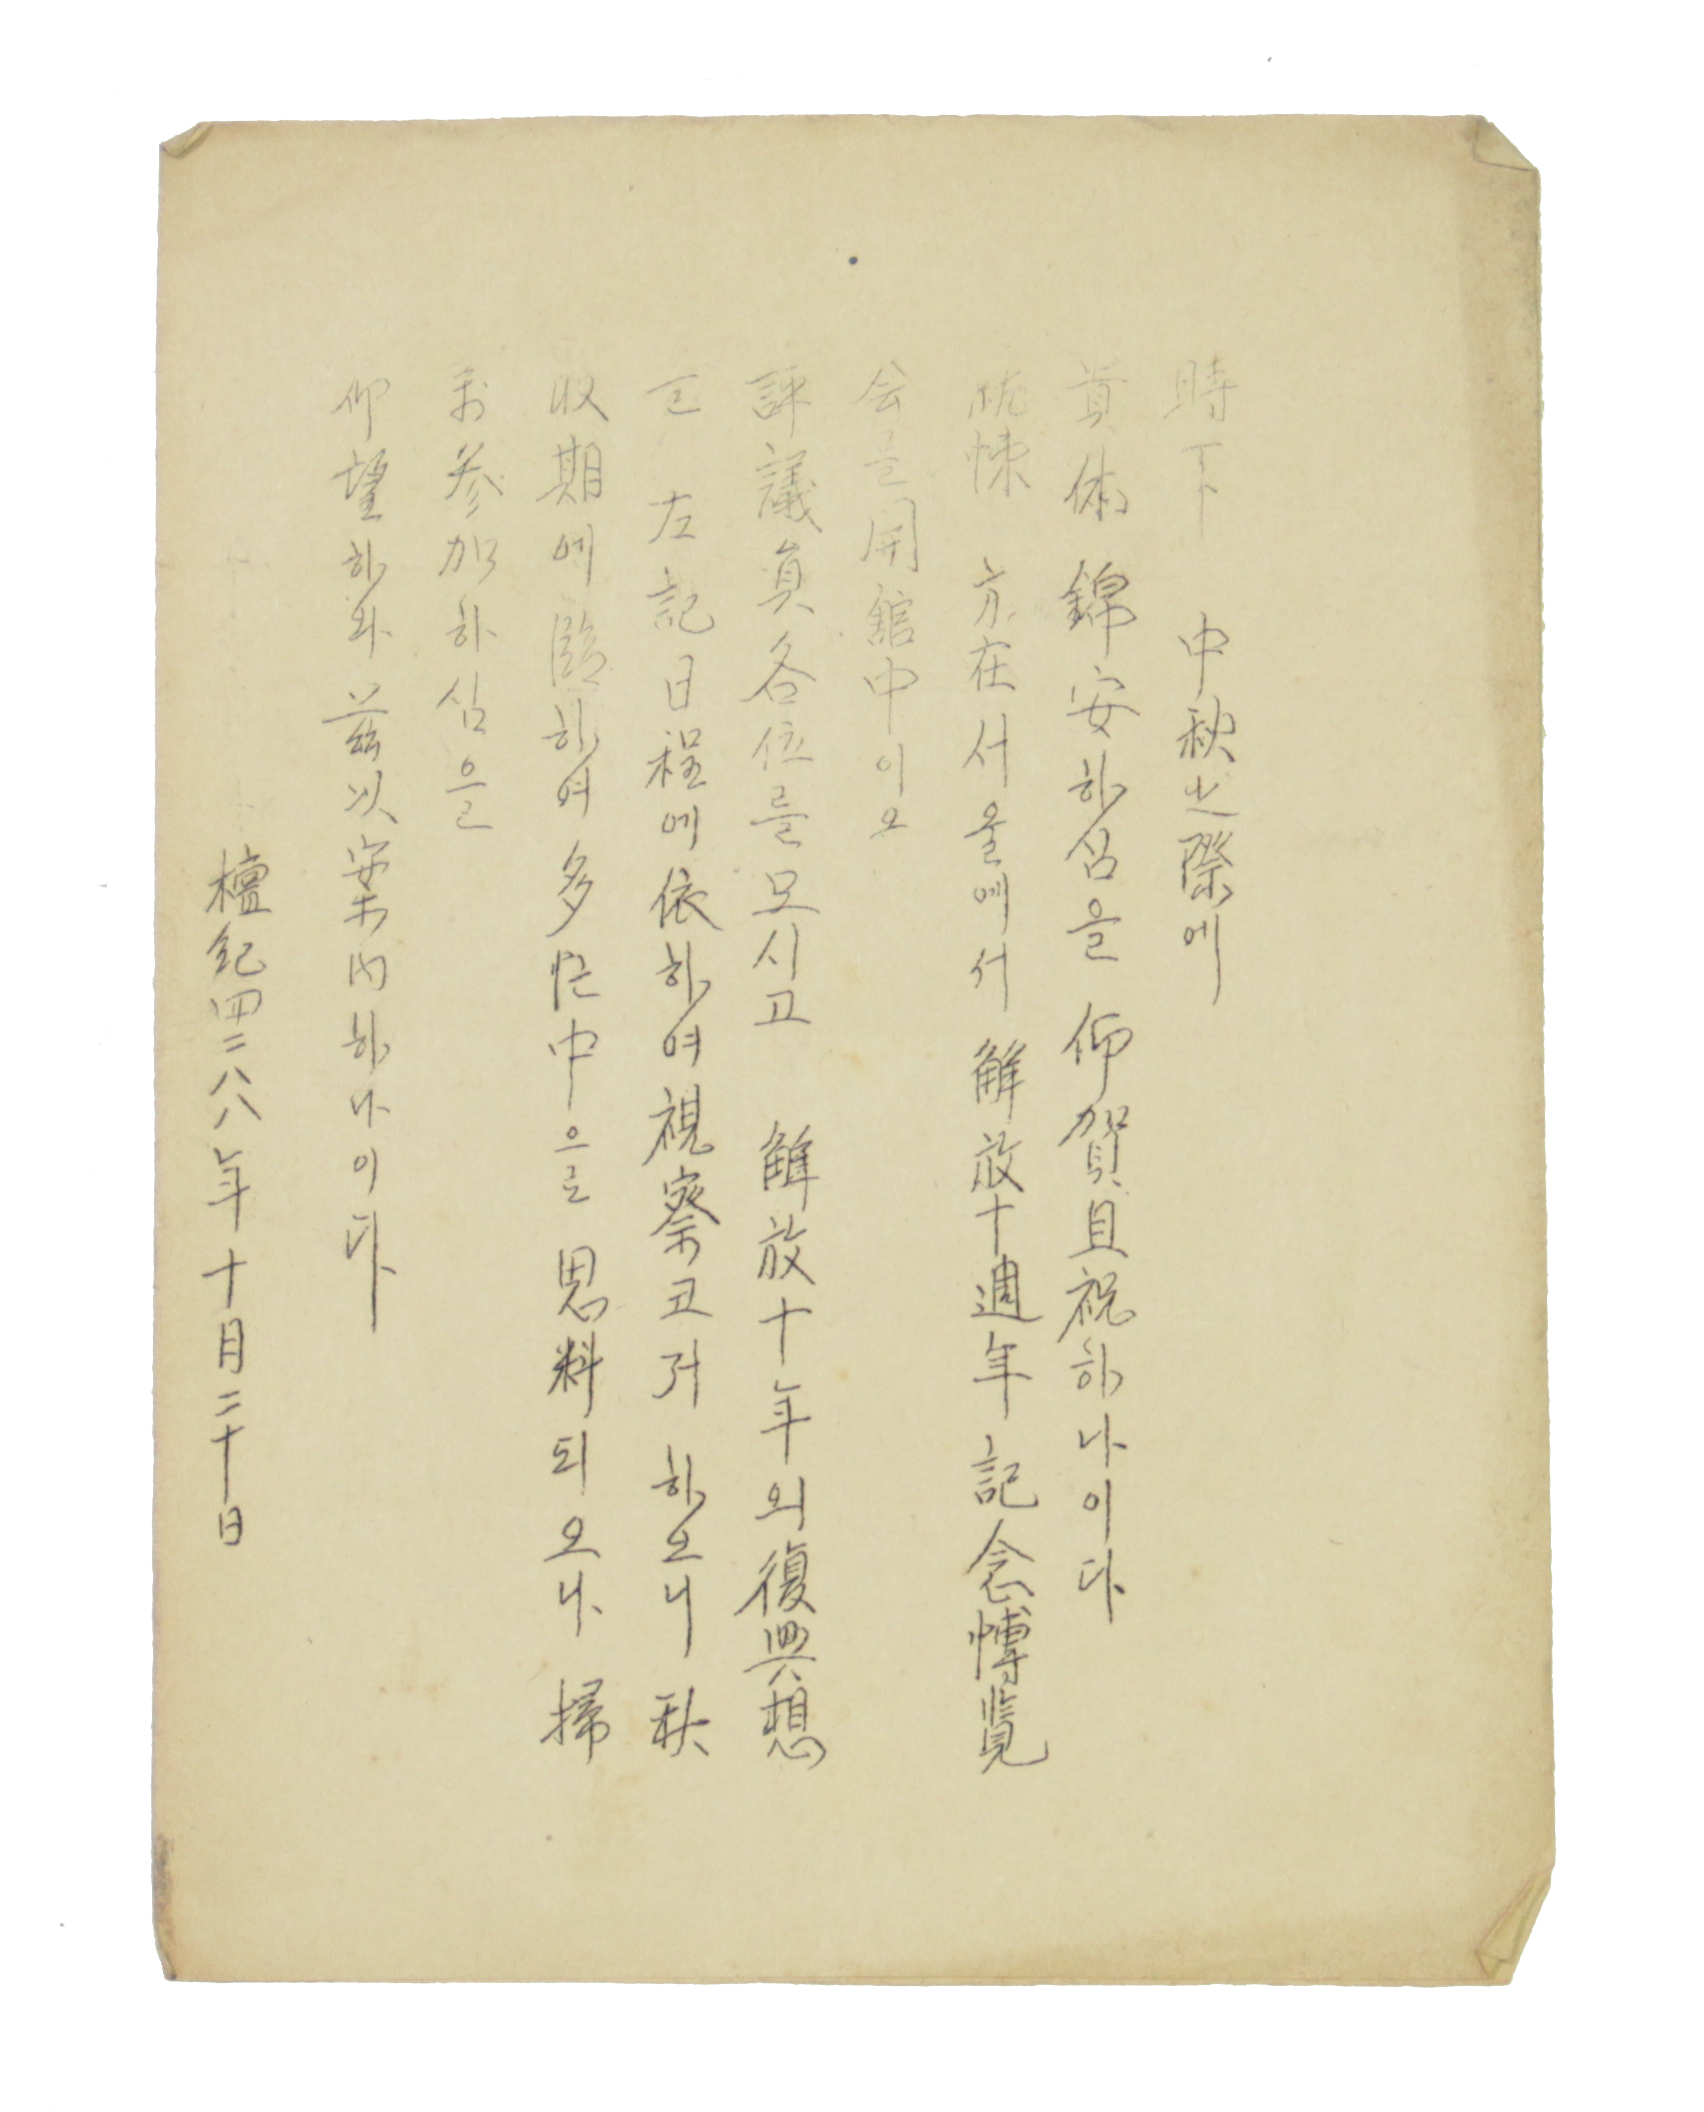 時下 中秋之際에
貴体 錦安하심을 仰賀且祝하나이다
就悚 亦在 서울에서 解放十週年 記念博覽
会를 開館中이오
評議員各位를 모시고 解放十年의 復興想
左記日程에 依하여 視察고저 하오니 秋
收期에 臨하여 多忙中으로 思料되오나 掃
萬參加하심을
仰望하와 玆以案內하나이다
檀紀四二八八年 十月二十日